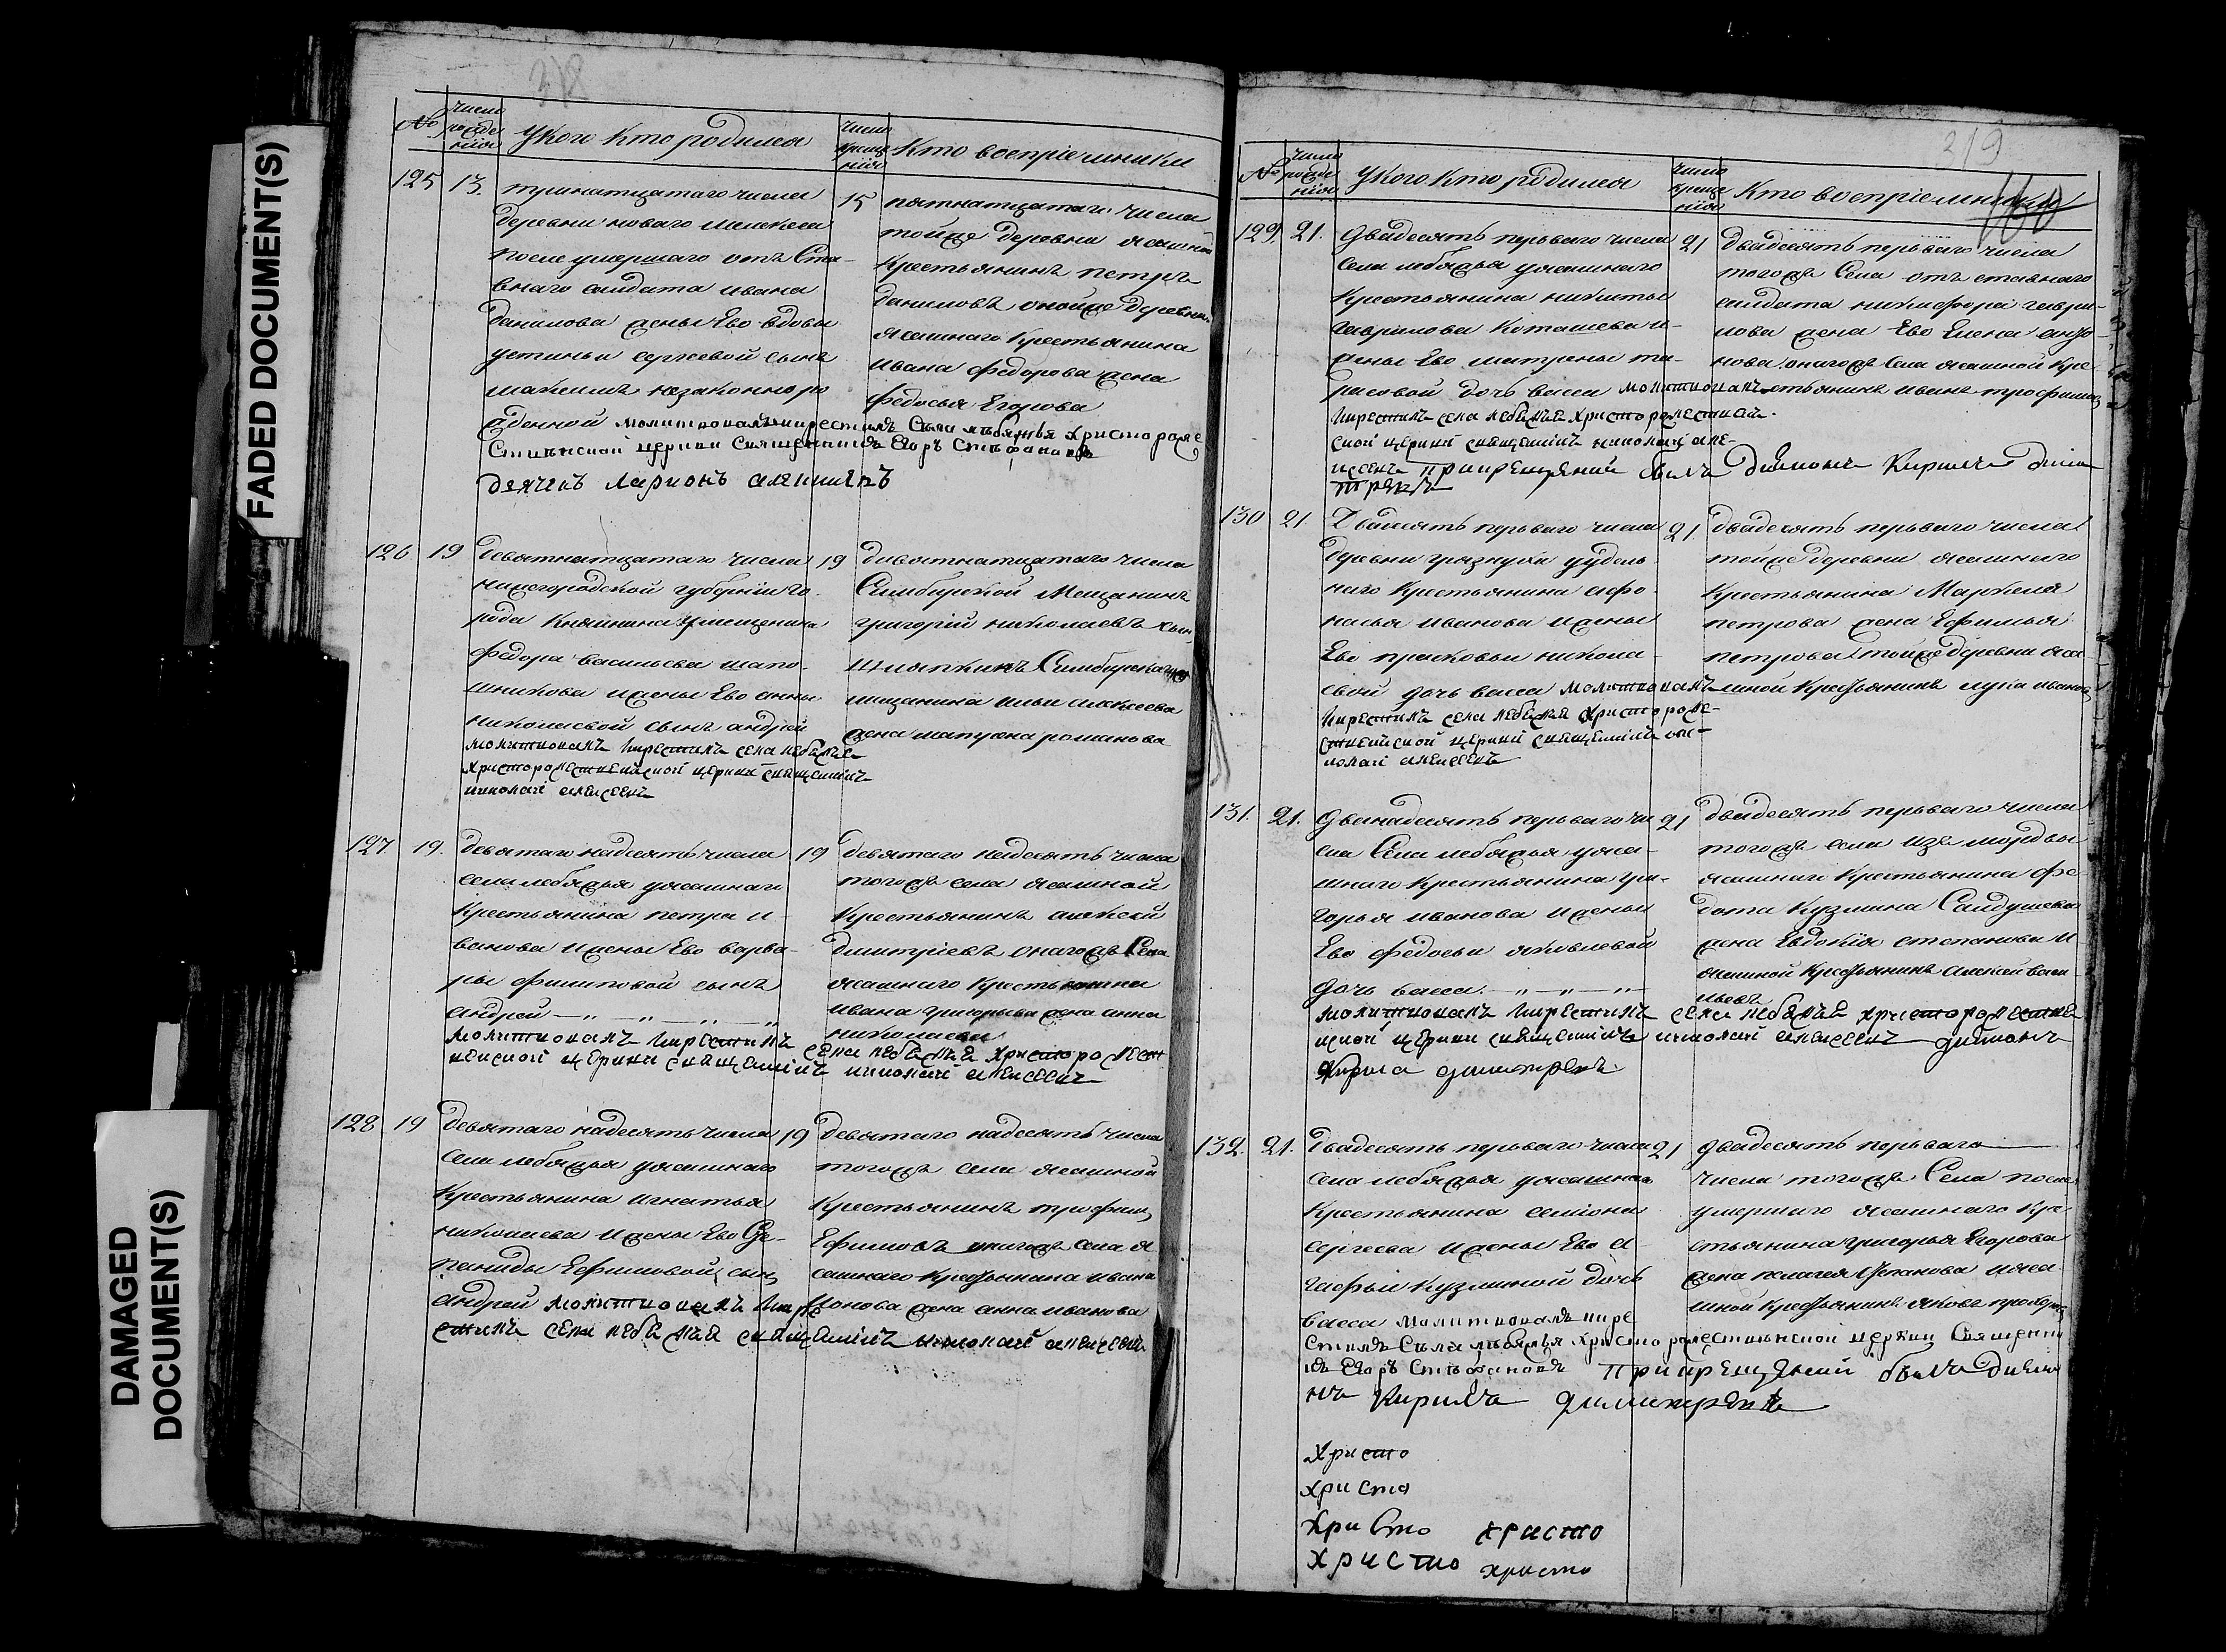 FADED DOCUMENT(S)
DAMAGED
DOCUMENT(S)
318
№
число
рожде
нiя
Укого кто родился
число
креще
нiя
Кто воспрiемники
125 13.
тринатцатаго числа
деревни новаго мелекеса
после умершаго отъ Ста-
внаго салдата ивана
данилова жены Ево вдовы
устиньи сергеевой сынъ
максимъ незаконноро
жденной молитвовалъ и крестилъ Села лебяжья Христорожде
Ственской церкви Священникъ Егоръ Стефановъ
дьячекъ Ларионъ алексиевъ
15
пятнатцатаго числа
тойже деревни ясашной
крестьянинъ петръ
даниловъ онойже деревни
ясашнаго крестьянина
ивана федорова жена
федосья Егорова
126 19
девятнатцатаго числа
нижегородской губернiи го-
рода Княинина у мещенина
федора васильева шапо-
шникова и жены Ево анны
николаевой сынъ андрей
молитвовалъ крестилъ села лебяжья
христорождественской церкви священникъ
николай алексеевъ
19
девятнатцатаго числа
Симбирской Мещанинъ
григорiй николаевъ сынъ
Симбирскаго
мещанина ильи алексеева
жена матрена романова
127 19.
девятаго надесять числа
села лебяжья уясашнаго
крестьянина петра и-
ванова и жены Ево варва-
ры филиповой сынъ
андрей — „ — „ — „ — „
молитвовалъ крестилъ села лебяжья христорождест
венской церкви священникъ николай алексеевъ
19
девятаго надесять числа
тогожъ села ясашной
крестьянинъ алексей
дмитрiевъ онагожъ Села
ясашнаго крестьянина
ивана григорьева жена анна
николаева
128 19
девятаго надесять числа
села лебяжья уясашнаго
крестьянина игнатья
николаева и жены Ево Сте-
пaниды Ефимовой сынъ
андрей молитвовалъ кре
стилъ села лебяжья священникъ николай алексеевъ
19
девятаго надесять числа
тогожъ села ясашной
крестьянинъ трофимъ
Ефимовъ онагожъ села я
сашнаго крестьянина ивана
ионова жена анна иванова
319
160
№
число
рожде
нiя
Укого кто родился
число
креще
нiя
Кто воспрiемники
129. 21.
двадесять перьваго числа
Села лебяжья уясашнаго
крестьянина никиты
гаврилова Коташева и-
жены Ево матрены та-
расовой дочь васса молитвовалъ
крестилъ села лебяжья христорождествен-
ской церкви священникъ николай але-
ксеевъ при крещенiй былъ дияконъ Кирилъ дми
трiевъ
21
двадесять перьваго числа
тогожъ Села отъ ставнаго
салдата никифора гаври-
лова жена Ево Елена анфи-
нова онагожъ Села ясашной кре-
стьянинъ иванъ трофимовъ
130 21.
Двадесять перьваго числа
деревни грязнухи у удель-
наго крестьянина афо-
насья иванова и жены
Ево прасковьи никола-
евой дочь васса молитвовалъ
крестилъ села лебяжья христорожде-
ственской церкви священникъ ни-
колай алексеевъ
21.
двадесять перьваго числа
тойже деревни ясашнаго
крестьянина Маркела
петрова жена Ефимья
петрова тойже деревни яса
шной крестьянинъ лука ивановъ
131. 21.
Дванадесять перьваго чи
сла Села лебяжья уяса-
шнаго крестьянина гри-
горья иванова и жены
Ево федосьи яковлевой
дочь васса. — „ — „ — „
молитвовалъ крестилъ села лебяжья христорождестве
нской церкви священникъ николай алексеевъ дияконъ
Кирила димитрiевъ
21
двадесять перьваго числа
тогожъ села изъ мордвы
ясашнаго крестьянина фе
дота Кузмина Сандушева
жена Евдокiя степанова и
ясашной крестьянинъ алексей васи
льевъ
132. 21.
Двадесять перьваго числа
Села лебяжья уясашнаго
крестьянина семiона
сергеева и жены Ево а-
гафьи Кузминой дочь
васса молитвовалъ кре
стилъ Села лебяжья Христорождественской церкви Священни
къ Егоръ Стефановъ при крещенiй былъ дияко
нъ Кирилъ димитрiевъ
21
двадесять перьваго
числа тогожъ Села после
умершаго ясашнаго кре
стьянина григорья Егорова
жена пелагея Степанова и яса
шной крестьянинъ яковъ
Христо
христо
Христо христо
христо христо